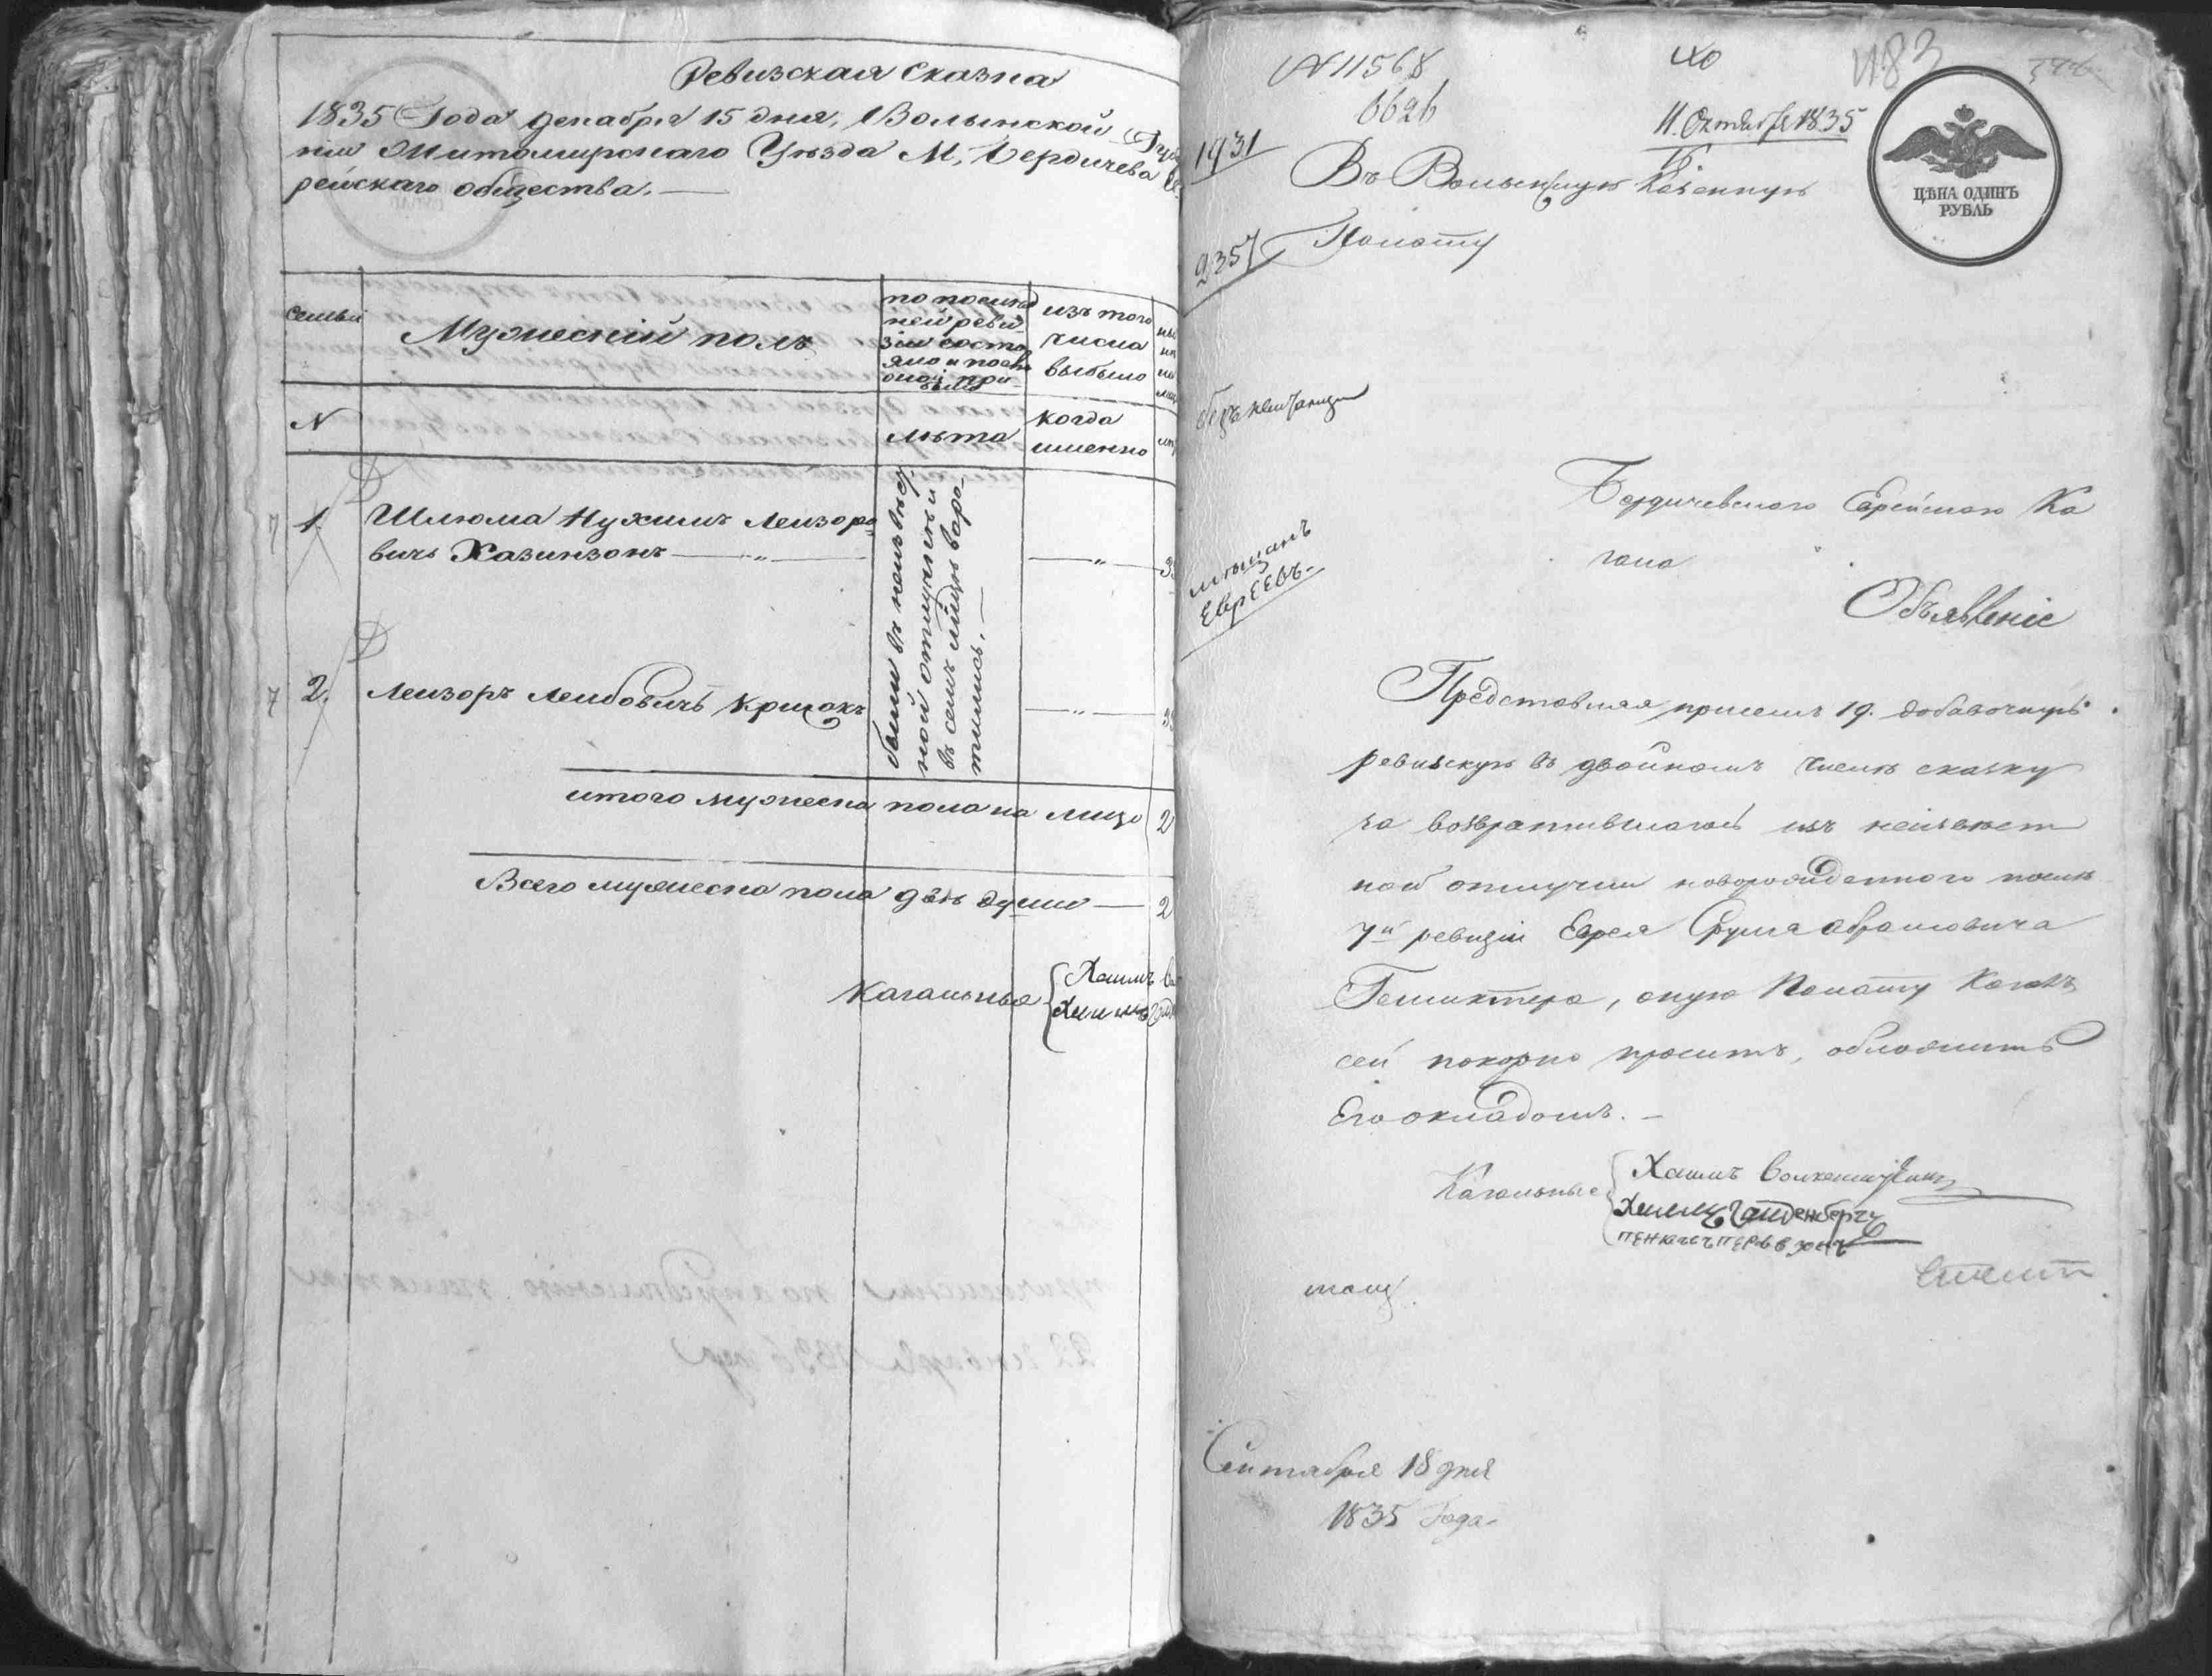 Ревизская Сказка
1835 Года декабря 15 дня, Волынской Гу
нии Житомирскаго Уезда М, Бердичева Ев
рейскаго общества.
семьи
Мужеский полъ
по послед
ней реви
зии состо
яло и после
оной при
было
изъ того
числа
выбыло
N
лета
когда
именно
1.
Шлюома Нухимъ Лейзоро
вичъ Хазинзонъ
были въ неизвест
ной отлучки и
въ семъ году возвра
тились.
2.
Лейзоръ Лейбовичъ Крицакъ
итого мужеска пола на лицо 2
Всего мужеска пола две души 2
Кагальные
Хаимъ
N 11568
40
1183
6626
11. Октября 1835
ЦѢНА ОДИНЪ
РУБЛЬ
1931
Въ Волынскую Казенную
Палату
2357
Бердичевского Еврейского Ка
гала
мещанъ
ЕврЕЕвъ.
Объявленіе
Представляя присемъ 19. добавочную
ревизскую въ двойномъ числе сказку
за возвратившагось изъ неизвест
ной отлучки новорожденного после
7й ревизіи Еврея Сруля Абрамовича
, оную Палату Кагалъ
сей покорно проситъ, обложить
Его окладомъ.
Кагальные
Хаимъ
Сентября 18 дня
1835 Года